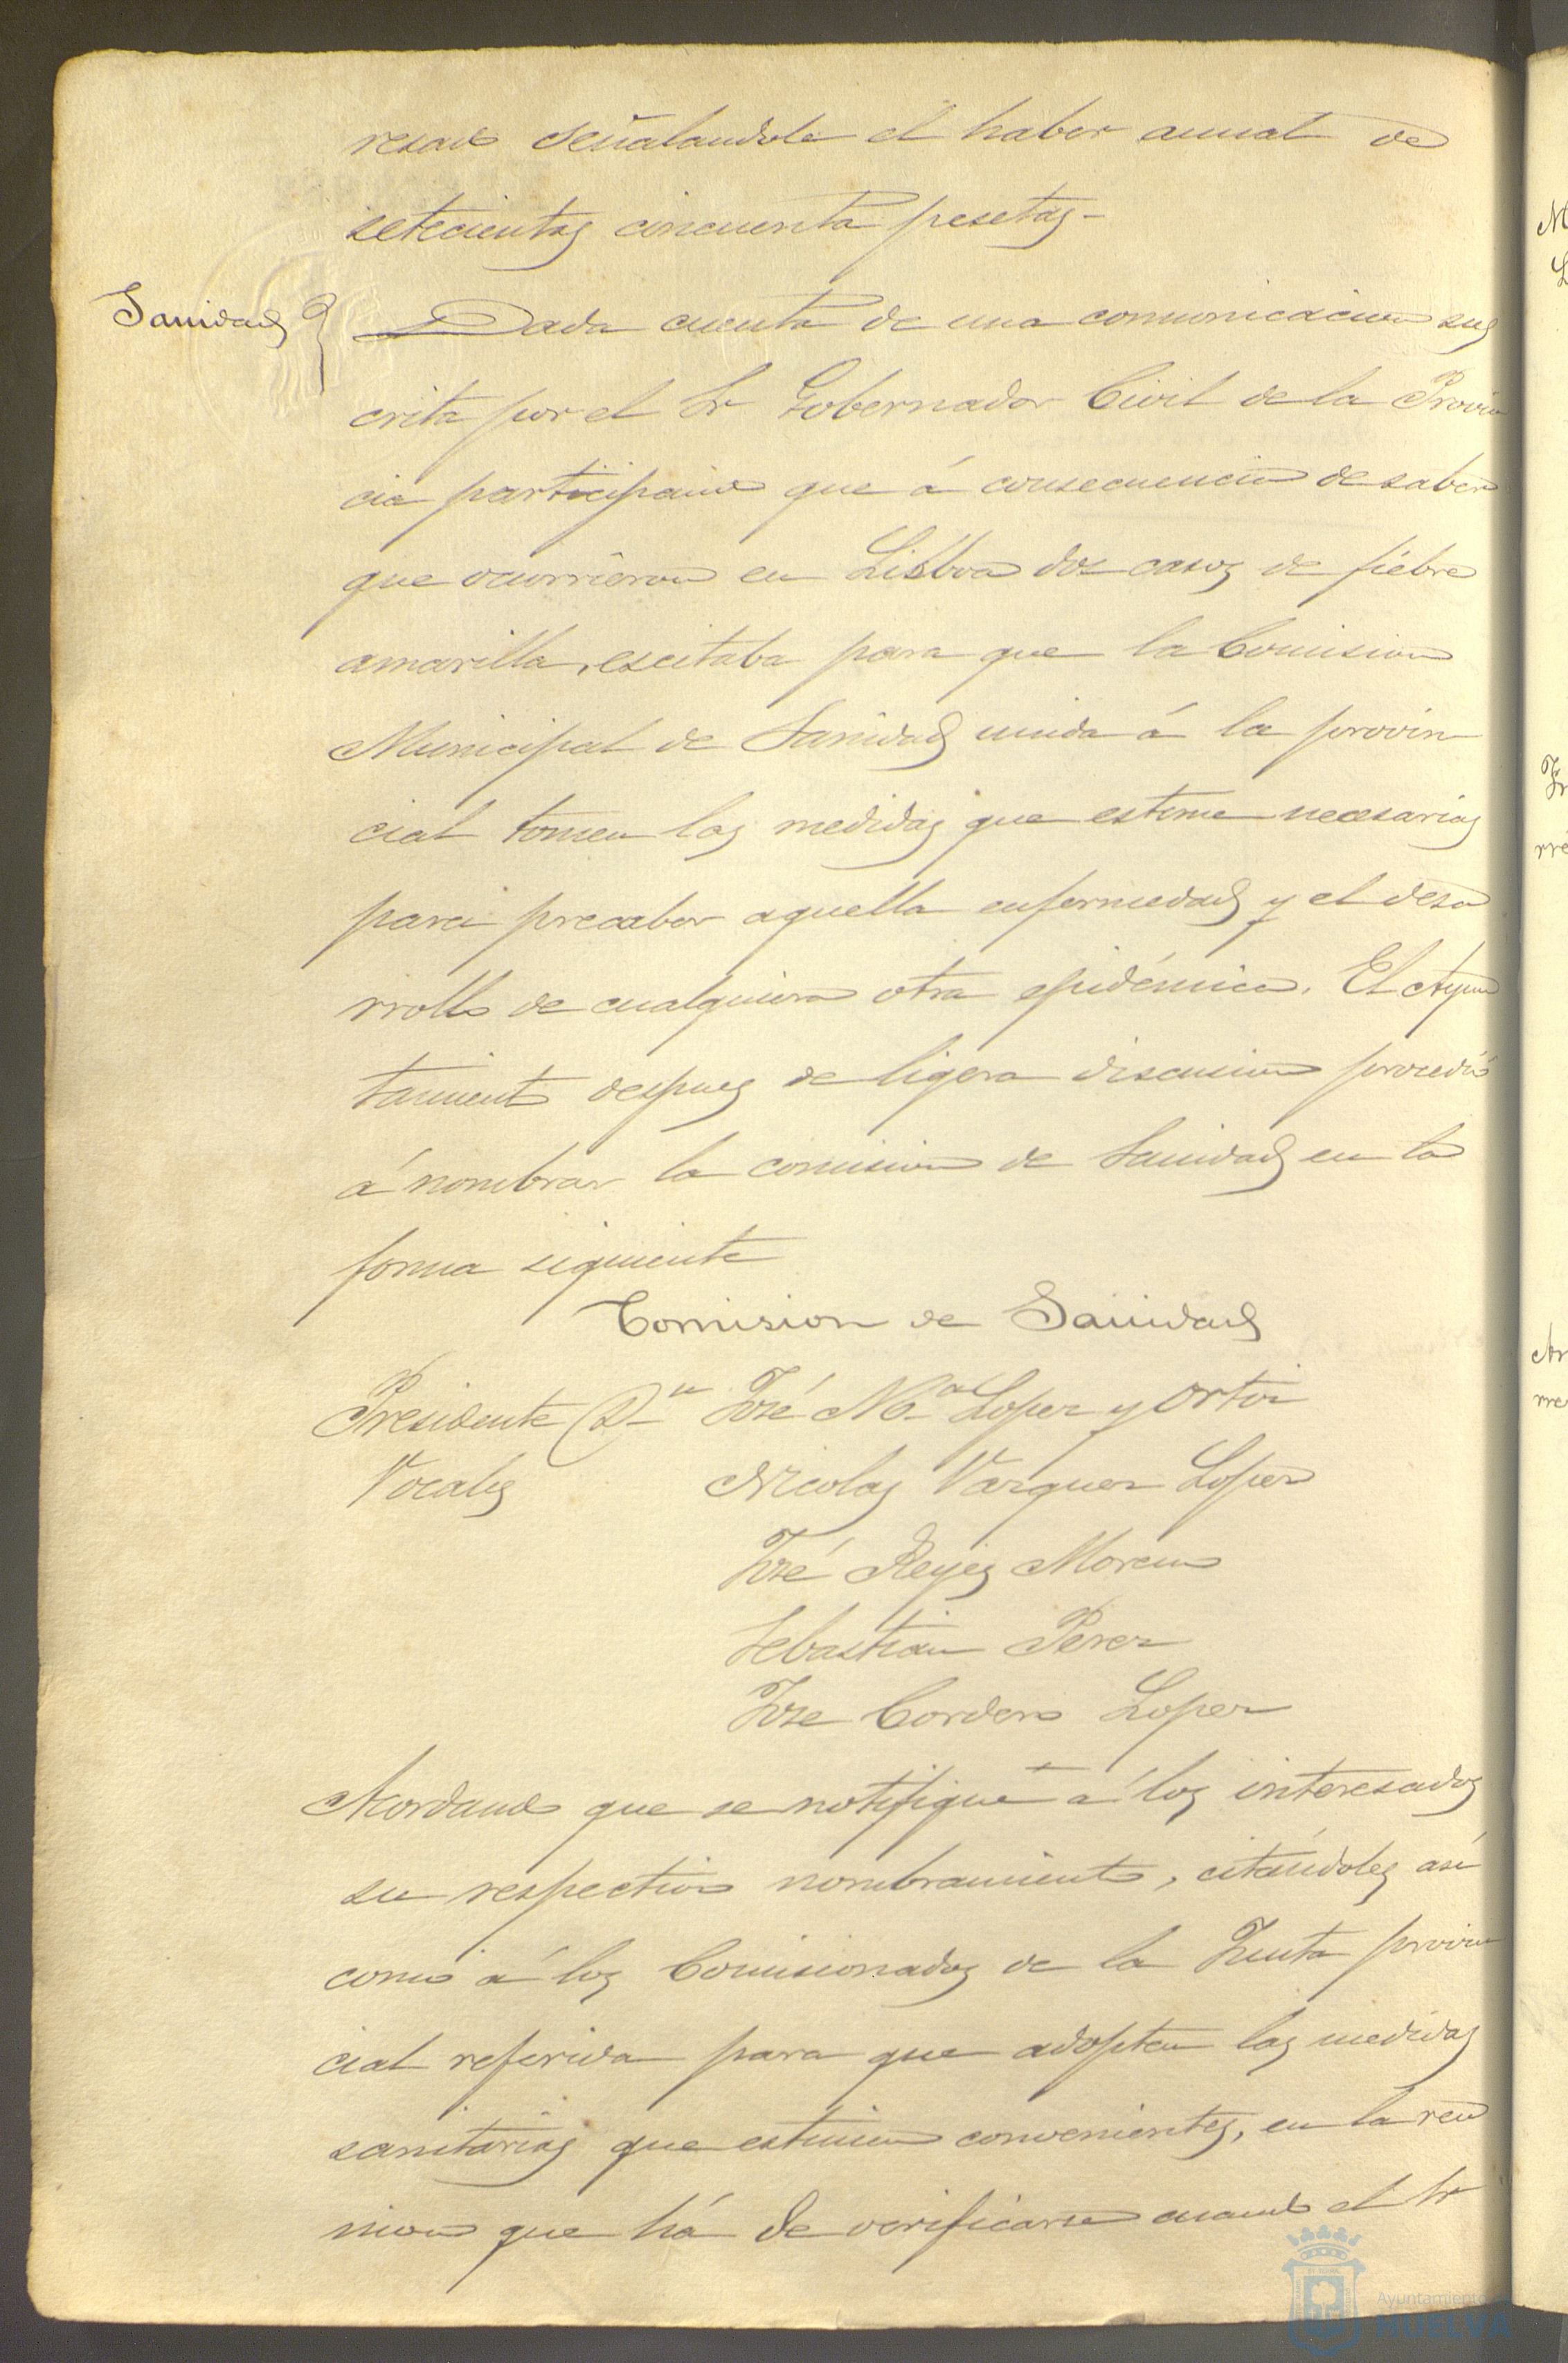 resado señalandole el haber anual de
setecientas cincuenta pesetas-
Sanidad
Dada cuenta de una comunicacion sus
crita por el Sr Gobernador Civil de la Provin
cia participando que á consecuencia de saber
que ocurrieron en Lisboa dos casos de fiebre
amarilla, escitaba para que la Comision
Municipal de Sanidad unida á la provin
cial tomen las medidas que estime necesarias
para precaber aquella enfermedad y el desa
rrollo de cualquiera otra epidémica. El Ayun
tamiento despues de ligera discusion procedió
á nombrar la comision de Sanidad en la
forma siguiente
Comision de Sanidad
Presidente Dn José Ma Lopez y Ortiz
Vocales Nicolas Vazquez Lopez
José Reyes Moreno
Sebastian Perez
Jose Cordero Lopez
Acordando que se notifique á los interesados
su respectivo nombramiento, citándoles así
como á los Comisionados de la Junta provin
cial referida para que adopten las medidas
sanitarias que estimen convenientes, en la reu
nion que há de verificarse cuando el Sr
Ayuntamiento
HUELVA